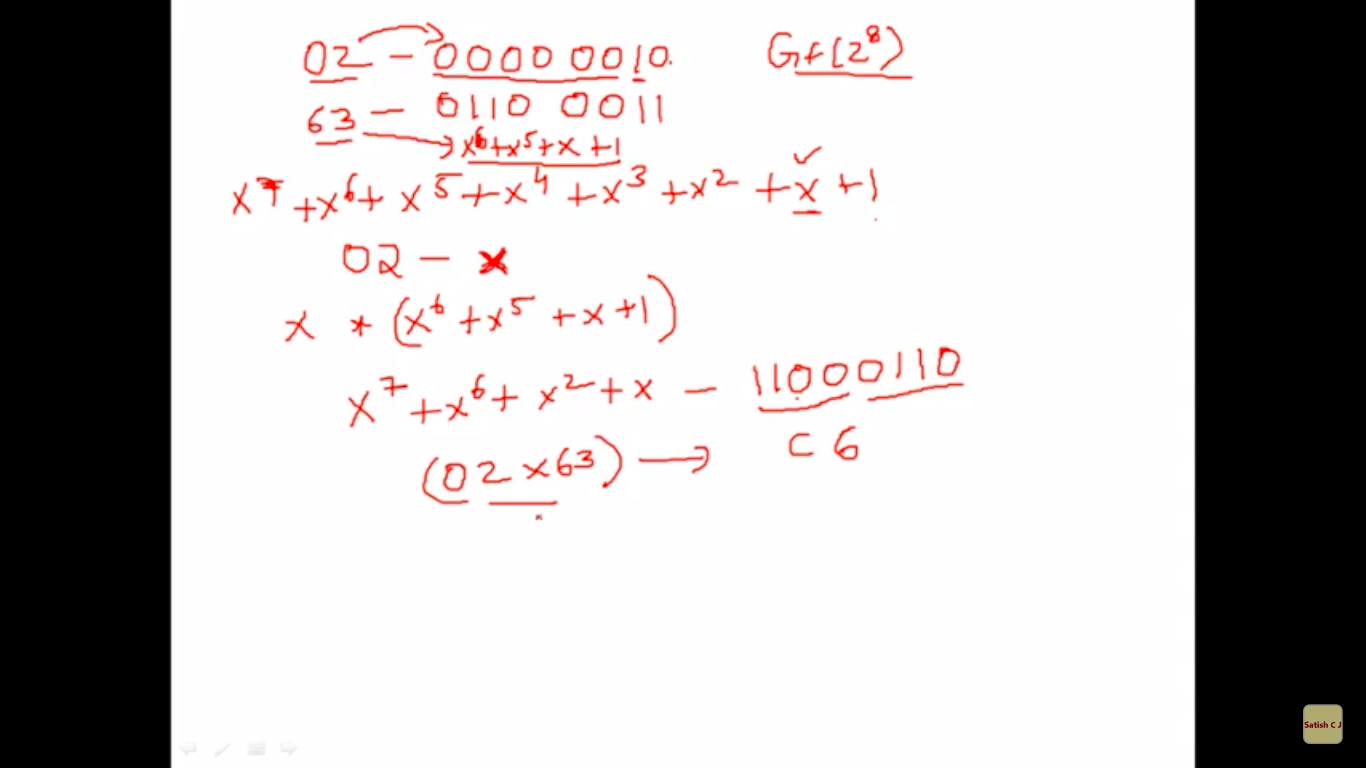 02 - 0000 0010. Gf(2⁸)
63 - 0110 0011
x⁶+x⁵+x+1
x⁷+x⁶+x⁵+x⁴+x³+x²+x+1
02 - x
x * (x⁶+x⁵+x+1)
x⁷+x⁶+x²+x - 11000110
(02 x 63) → C6
Satish C J